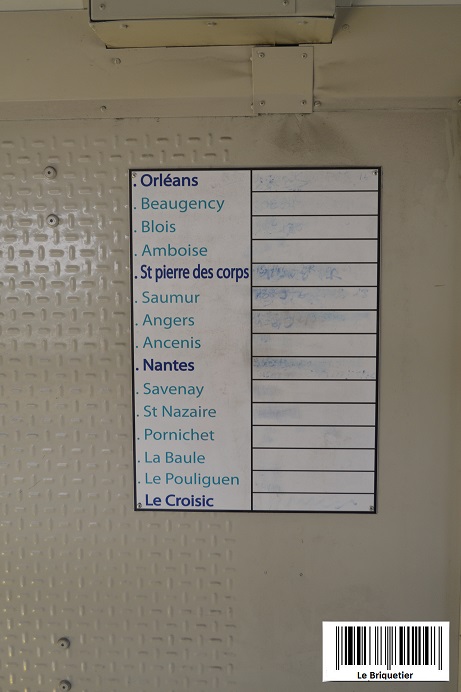 . Orléans
. Beaugency
. Blois
. Amboise
. St pierre des corps
. Saumur
. Angers
. Ancenis
. Nantes
. Savenay
. St Nazaire
. Pornichet
. La Baule
. Le Pouliguen
. Le Croisic
Le Briquetier